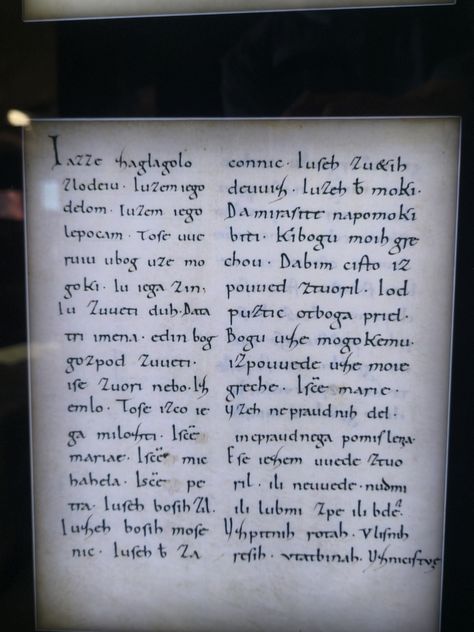 Iazze zaglagolo
zlodeiu. Iuzem iego
delom. Iuzem iego
lepocam. Tose uue
ruiu ubog uze mo
goki. Iu iega zin.
Iu zuueti duh. Data
tri imena. edin bog
gozpod zuueti.
ise zuori nebo. Iz
emlo. Tose izco ie
ga milozti. Isce
mariae. Isce mic
hahela. Isce pe
tra. Iuseh bosih zil.
Iuzeh bosih mose
nic. Iuseh ƀ za
connic. Iuseh zuetih
deuuiz. Iuzeh ƀ moki.
Da mirasite napomoki
biti. Kibogu moih gre
chou. Dabim cisto iz
pouued ztuoril. Iod
puztic otboga priel.
Bogu uze mogokemu.
izpouuede uze moie
greche. Isce marie.
Uzeh nepraudnih del.
inepraudnega pomislena.
Ese iezem uuede ztuo
ril. ili neuuede. nudmi
ili lubmi zpe ili bde.
Uzpitnih rotah. Vlisnih
resih. Vtatbinah. Uznicistve